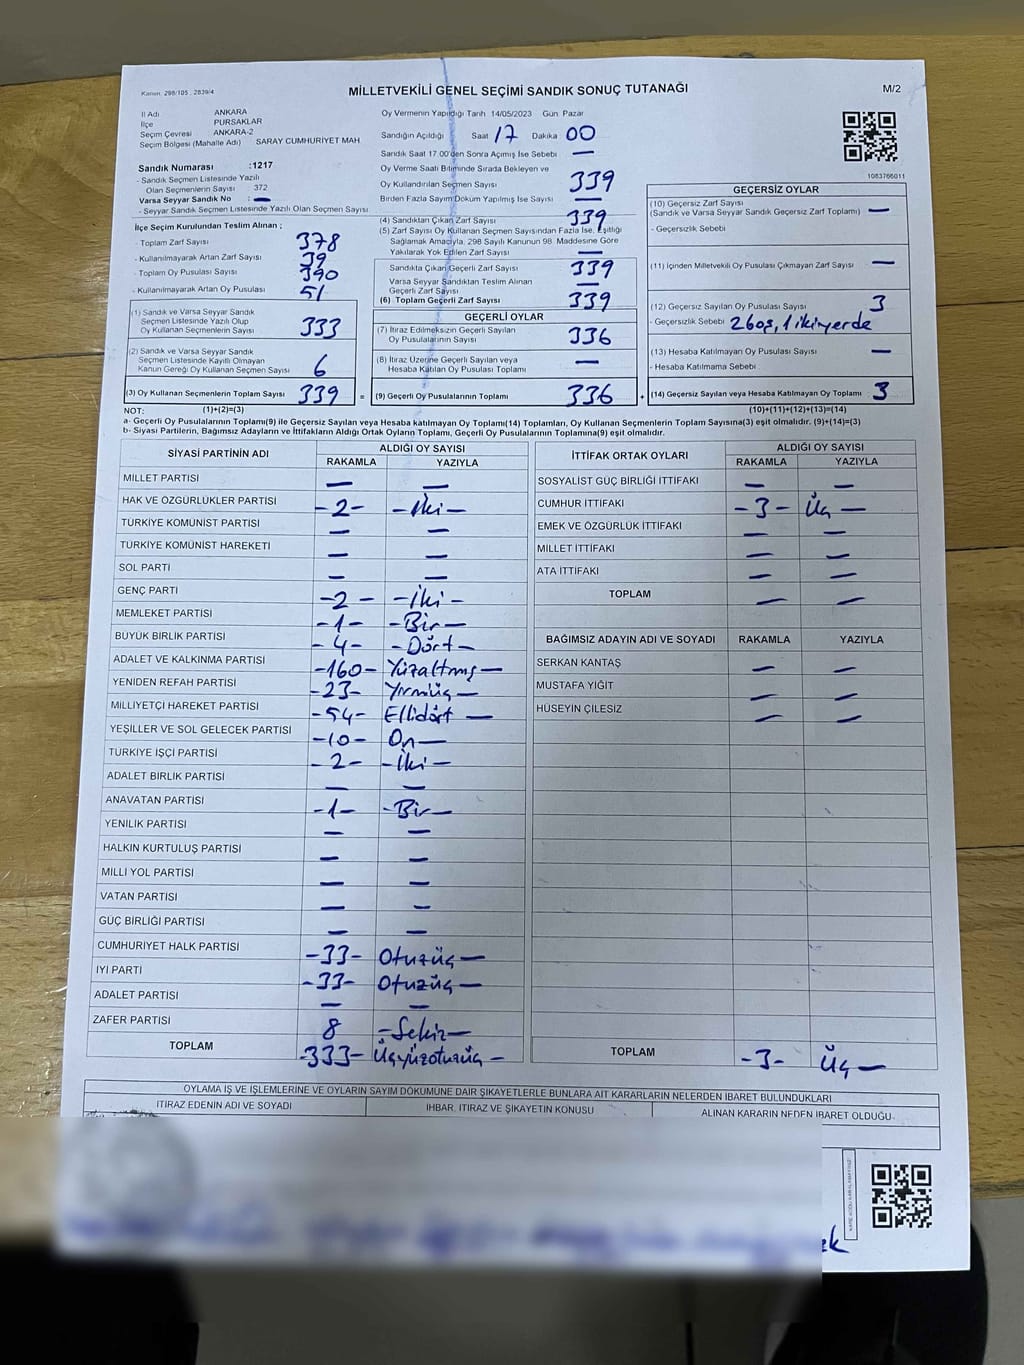 Kanun: 298/105, 2839/4
MİLLETVEKİLİ GENEL SEÇİMİ SANDIK SONUÇ TUTANAĞI
M/2
İl Adı ANKARA
İlçe PURSAKLAR
Seçim Çevresi ANKARA-2
Seçim Bölgesi (Mahalle Adı) SARAY CUMHURİYET MAH
Sandık Numarası :1217
- Sandık Seçmen Listesinde Yazılı
Olan Seçmenlerin Sayısı 372
Varsa Seyyar Sandık No : —
- Seyyar Sandık Seçmen Listesinde Yazılı Olan Seçmen Sayısı
İlçe Seçim Kurulundan Teslim Alınan ;
- Toplam Zarf Sayısı 378
- Kullanılmayarak Artan Zarf Sayısı 39
- Toplam Oy Pusulası Sayısı 390
- Kullanılmayarak Artan Oy Pusulası 51
(1) Sandık ve Varsa Seyyar Sandık
Seçmen Listesinde Yazılı Olup
Oy Kullanan Seçmenlerin Sayısı 333
(2) Sandık ve Varsa Seyyar Sandık
Seçmen Listesinde Kayıtlı Olmayan
Kanun Gereği Oy Kullanan Seçmen Sayısı 6
(3) Oy Kullanan Seçmenlerin Toplam Sayısı 339 =
Oy Vermenin Yapıldığı Tarih 14/05/2023 Gün: Pazar
Sandığın Açıldığı Saat 17 Dakika 00
Sandık Saat 17.00'den Sonra Açımış İse Sebebi —
Oy Verme Saati Bitiminde Sırada Bekleyen ve
Oy Kullandırılan Seçmen Sayısı 339
Birden Fazla Sayım Döküm Yapılmış İse Sayısı —
(4) Sandıktan Çıkan Zarf Sayısı 339
(5) Zarf Sayısı Oy Kullanan Seçmen Sayısından Fazla İse, Eşitliği
Sağlamak Amacıyla, 298 Sayılı Kanunun 98. Maddesine Göre
Yakılarak Yok Edilen Zarf Sayısı —
Sandıkta Çıkan Geçerli Zarf Sayısı 339
Varsa Seyyar Sandıktan Teslim Alınan
Geçerli Zarf Sayısı —
(6) Toplam Geçerli Zarf Sayısı 339
GEÇERLİ OYLAR
(7) İtiraz Edilmeksizin Geçerli Sayılan
Oy Pusulalarının Sayısı 336
(8) İtiraz Üzerine Geçerli Sayılan veya
Hesaba Katılan Oy Pusulası Toplamı —
(9) Geçerli Oy Pusulalarının Toplamı 336 +
1083766011
GEÇERSİZ OYLAR
(10) Geçersiz Zarf Sayısı
(Sandık ve Varsa Seyyar Sandık Geçersiz Zarf Toplamı) —
- Geçersizlik Sebebi
(11) İçinden Milletvekili Oy Pusulası Çıkmayan Zarf Sayısı —
(12) Geçersiz Sayılan Oy Pusulası Sayısı 3
- Geçersizlik Sebebi 2 boş, 1 iki yerde
(13) Hesaba Katılmayan Oy Pusulası Sayısı —
- Hesaba Katılmama Sebebi
(14) Geçersiz Sayılan veya Hesaba Katılmayan Oy Toplamı 3
NOT: (1)+(2)=(3) (10)+(11)+(12)+(13)=(14)
a- Geçerli Oy Pusulalarının Toplamı(9) ile Geçersiz Sayılan veya Hesaba katılmayan Oy Toplamı(14) Toplamları, Oy Kullanan Seçmenlerin Toplam Sayısına(3) eşit olmalıdır. (9)+(14)=(3)
b- Siyasi Partilerin, Bağımsız Adayların ve İttifakların Aldığı Ortak Oyların Toplamı, Geçerli Oy Pusulalarının Toplamına(9) eşit olmalıdır.
SİYASİ PARTİNİN ADI ALDIĞI OY SAYISI
RAKAMLA YAZIYLA
MİLLET PARTİSİ — —
HAK VE ÖZGÜRLÜKLER PARTİSİ -2- -İki-
TÜRKİYE KOMÜNİST PARTİSİ — —
TÜRKİYE KOMÜNİST HAREKETİ — —
SOL PARTİ — —
GENÇ PARTİ -2- -İki-
MEMLEKET PARTİSİ -1- -Bir-
BÜYÜK BİRLİK PARTİSİ -4- -Dört-
ADALET VE KALKINMA PARTİSİ -160- Yüzaltmış-
YENİDEN REFAH PARTİSİ -23- Yirmiüç-
MİLLİYETÇİ HAREKET PARTİSİ -54- Ellidört-
YEŞİLLER VE SOL GELECEK PARTİSİ -10- On-
TÜRKİYE İŞÇİ PARTİSİ -2- -İki-
ADALET BİRLİK PARTİSİ — —
ANAVATAN PARTİSİ -1- -Bir-
YENİLİK PARTİSİ — —
HALKIN KURTULUŞ PARTİSİ — —
MİLLİ YOL PARTİSİ — —
VATAN PARTİSİ — —
GÜÇ BİRLİĞİ PARTİSİ — —
CUMHURİYET HALK PARTİSİ -33- Otuzüç-
İYİ PARTİ -33- Otuzüç-
ADALET PARTİSİ — —
ZAFER PARTİSİ 8 -Sekiz-
TOPLAM -333- Üçyüzotuzüç-
İTTİFAK ORTAK OYLARI ALDIĞI OY SAYISI
RAKAMLA YAZIYLA
SOSYALİST GÜÇ BİRLİĞİ İTTİFAKI — —
CUMHUR İTTİFAKI -3- Üç-
EMEK VE ÖZGÜRLÜK İTTİFAKI — —
MİLLET İTTİFAKI — —
ATA İTTİFAKI — —
TOPLAM — —
BAĞIMSIZ ADAYIN ADI VE SOYADI RAKAMLA YAZIYLA
SERKAN KANTAŞ — —
MUSTAFA YİĞİT — —
HÜSEYİN ÇİLESİZ — —
TOPLAM -3- Üç-
OYLAMA İŞ VE İŞLEMLERİNE VE OYLARIN SAYIM DÖKÜMÜNE DAİR ŞİKAYETLERLE BUNLARA AİT KARARLARIN NELERDEN İBARET BULUNDUKLARI
İTİRAZ EDENİN ADI VE SOYADI İHBAR, İTİRAZ VE ŞİKAYETİN KONUSU ALINAN KARARIN NEDEN İBARET OLDUĞU